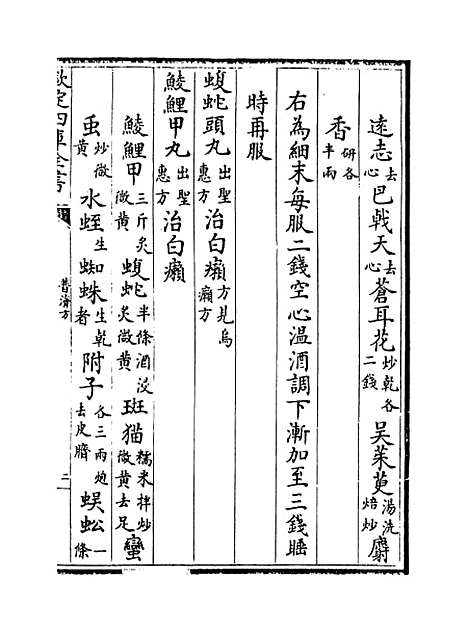 遠志去心巴戟天去心蒼耳花炒乾各二錢吳茱萸湯洗焙炒麝
香研各半兩
右為細末每服二錢空心温酒調下漸加至三錢睡
時再服
蝮蛇頭丸出聖惠方治白癩方見烏癩方
鯪鯉甲丸出聖惠方治白癩
鯪鯉甲三斤炙微黃蝮蛇半條酒浸炙微黃斑猫糯米拌炒微黃去足蠻
虫炒微黃水蛭生蜘蛛生乾者附子各三兩炮去皮臍蜈蚣一條
欽定四庫全書
普濟方
二